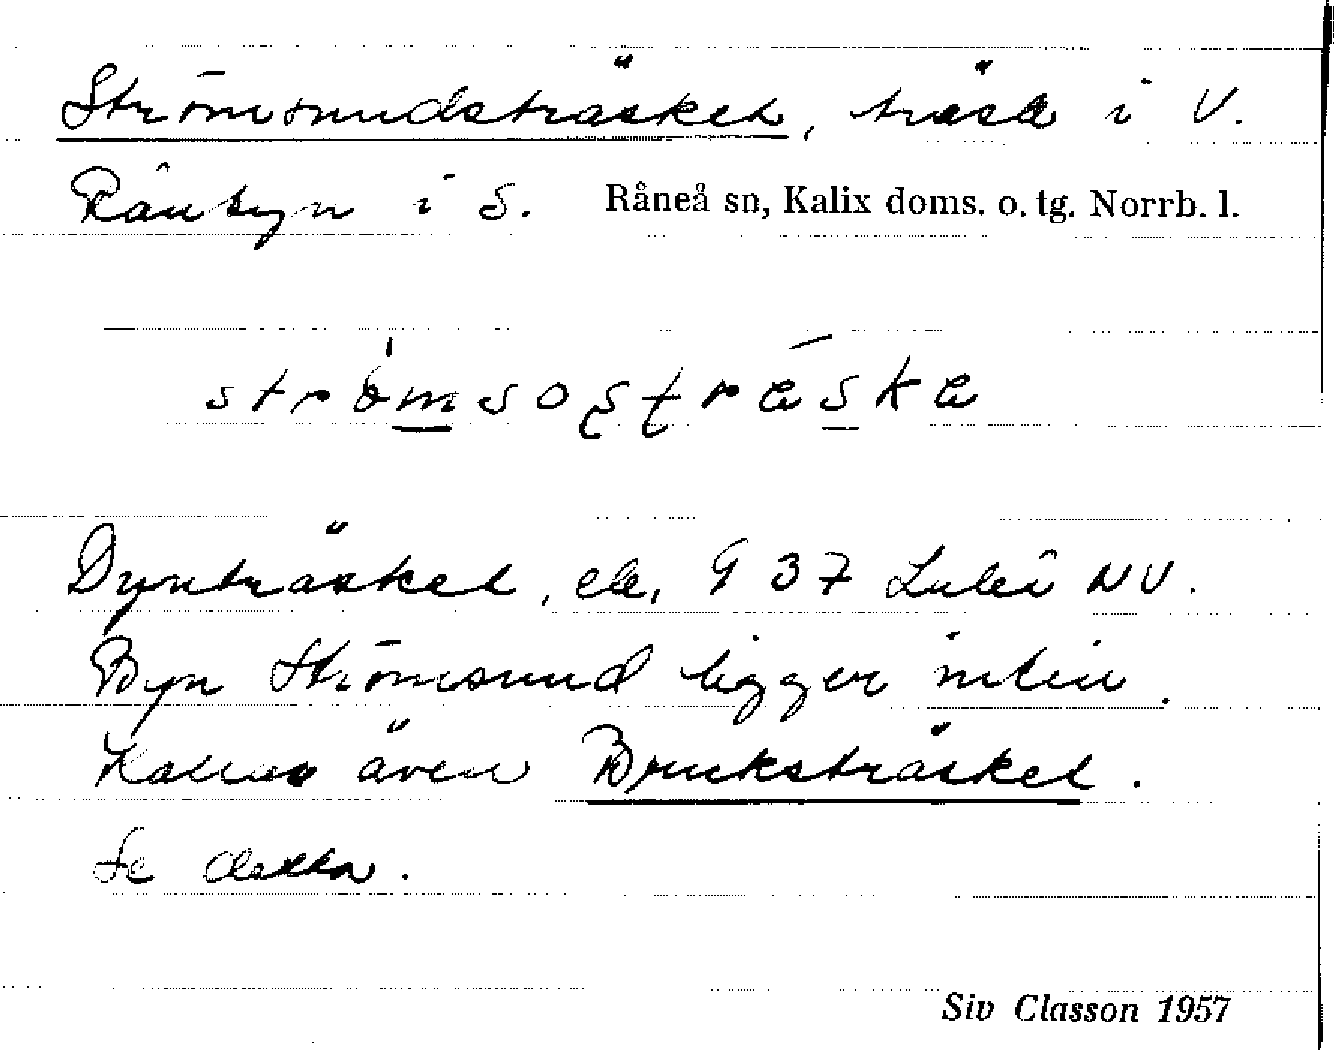 Strömsundsträsket, träsk i V.
Råneå sn, Kalix doms. o. tg. Norrb. l.
Dynträsket, ek. 9 37 Luleå NV.
Byn Strömsund ligger intill.
Kallas även Bruksträsket.
Se detta.
Siv Classon 1957